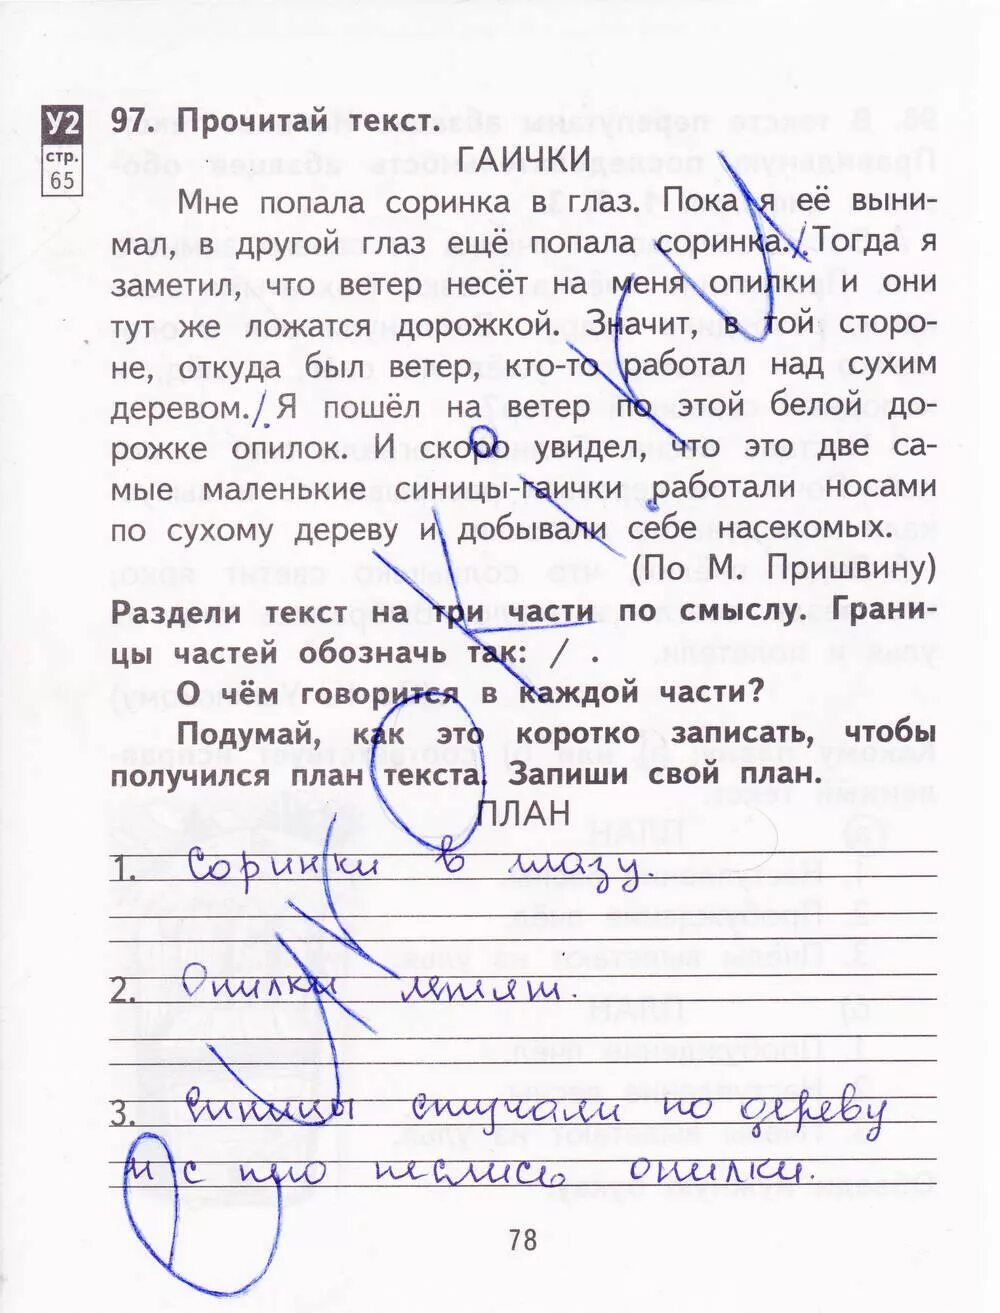 У2
стр.
65
97. Прочитай текст.
ГАИЧКИ
Мне попала соринка в глаз. Пока я её выни-
мал, в другой глаз ещё попала соринка./ Тогда я
заметил, что ветер несёт на меня опилки и они
тут же ложатся дорожкой. Значит, в той сторо-
не, откуда был ветер, кто-то работал над сухим
деревом./ Я пошёл на ветер по этой белой до-
рожке опилок. И скоро увидел, что это две са-
мые маленькие синицы-гаички работали носами
по сухому дереву и добывали себе насекомых.
(По М. Пришвину)
Раздели текст на три части по смыслу. Грани-
цы частей обозначь так: / .
О чём говорится в каждой части?
Подумай, как это коротко записать, чтобы
получился план текста. Запиши свой план.
ПЛАН
1. Соринки в глазу.
2. Опилки летят.
3. Синицы стучали по дереву
и с него неслись опилки.
78